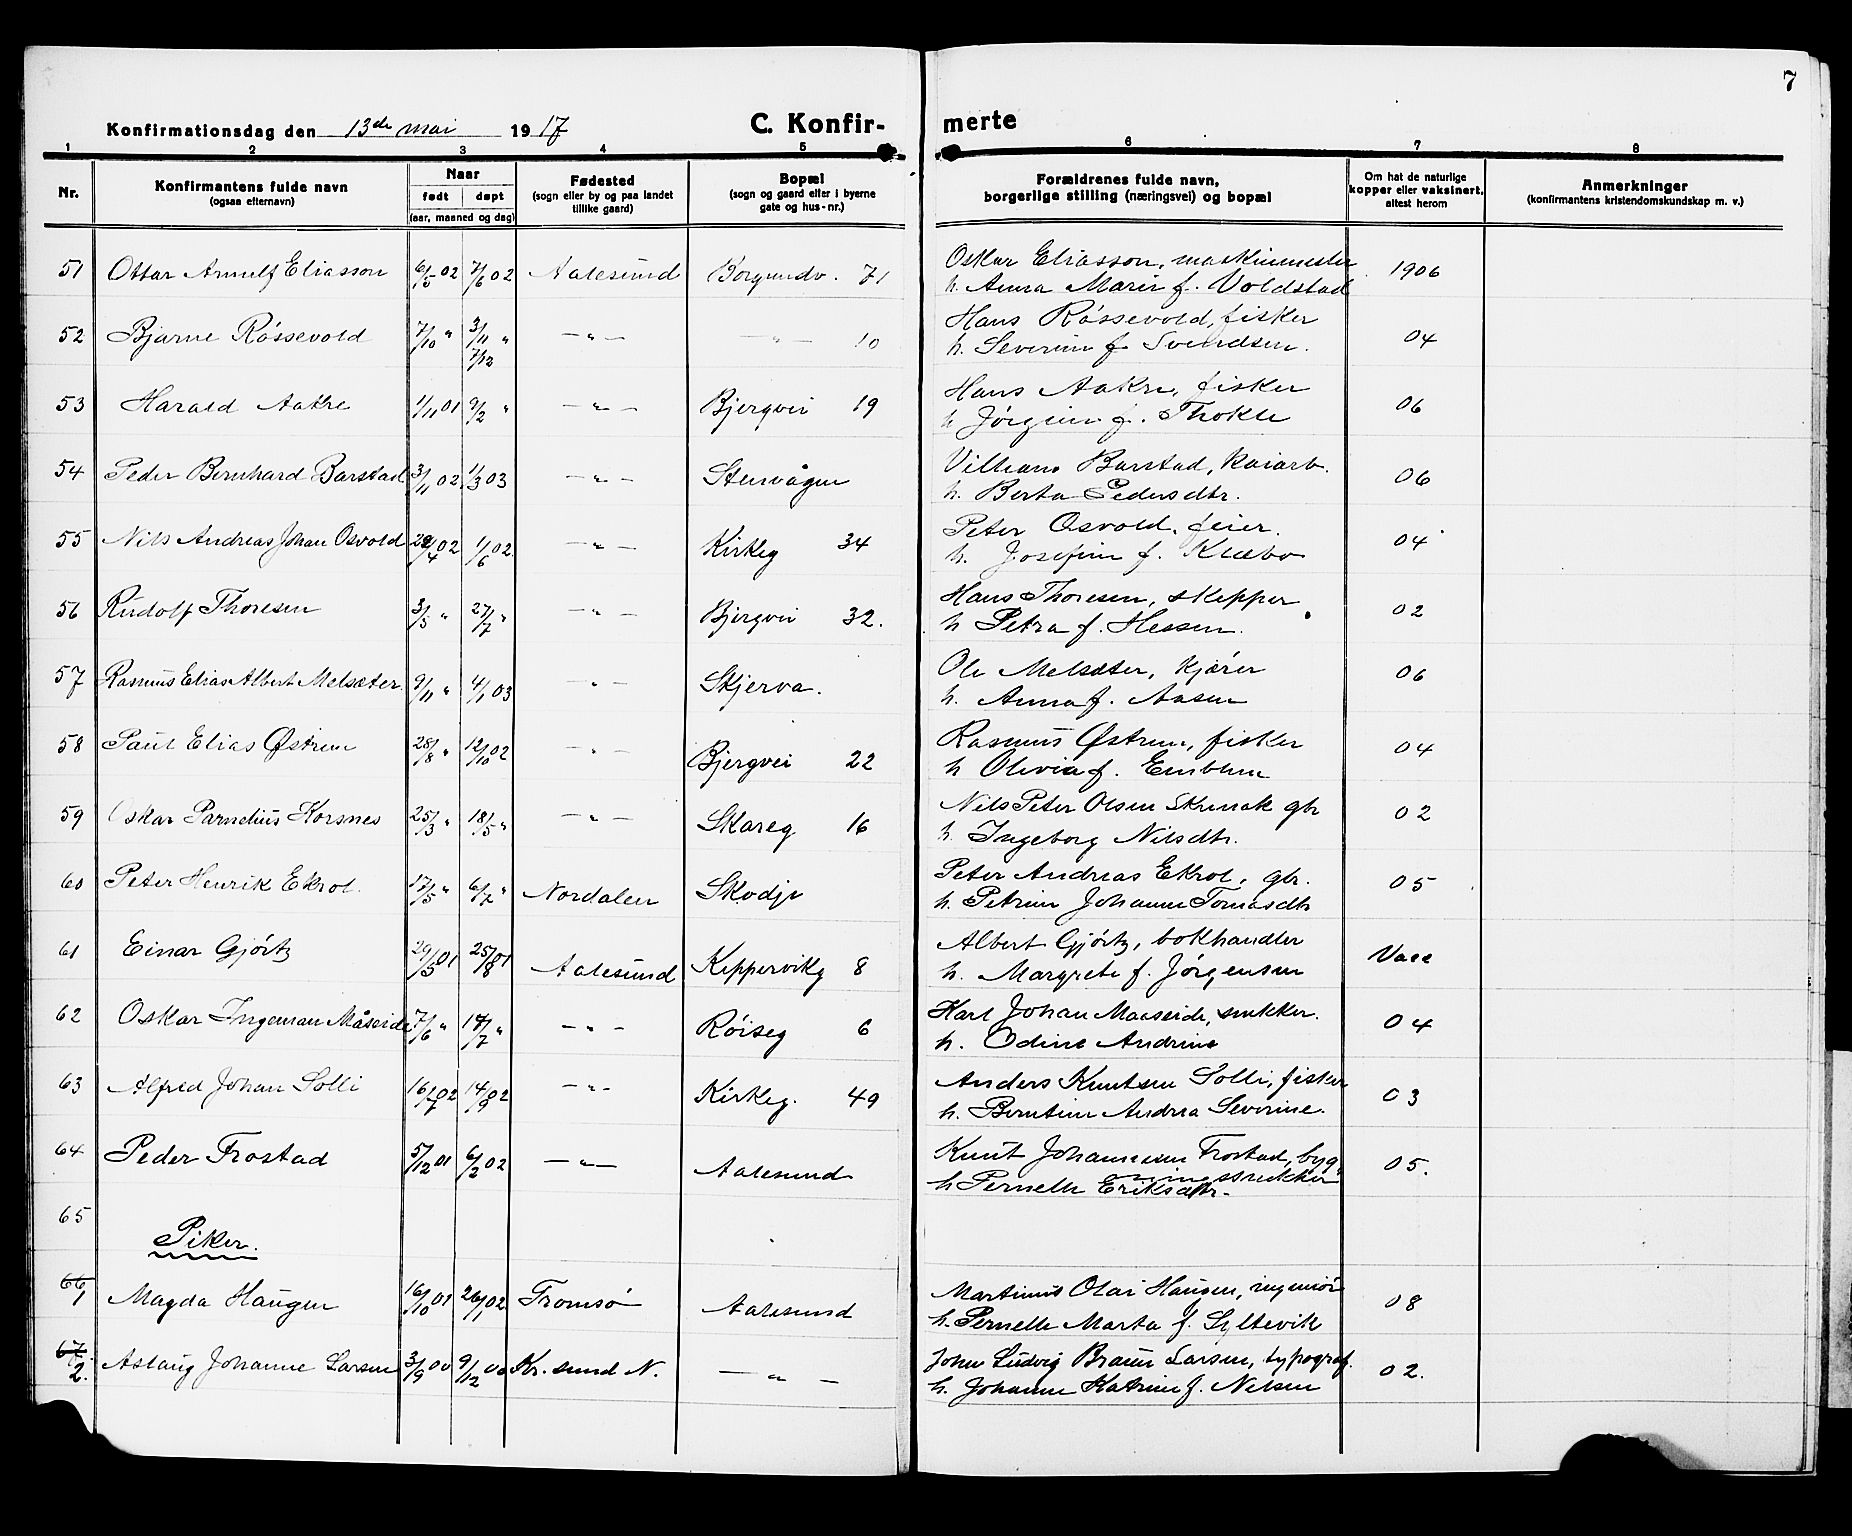 7
Konfirmationsdag den 13de mai 1917 C. Konfirmerte
1 2 3 4 5 6 7 8
Nr. Konfirmantens fulde navn (ogsaa efternavn) Naar født døpt (aar, maaned og dag) Fødested (sogn eller by og paa landet tillike gaard) Bopæl (sogn og gaard eller i byerne gate og hus-nr.) Forældrenes fulde navn, borgerlige stilling (næringsvei) og bopæl Om hat de naturlige kopper eller vaksinert, attest herom Anmerkninger (konfirmantens kristendomskundskap m. v.)
51 Ottar Arnulf Eliasson 6/5 02 7/6 02 Aalesund Borgundv. 71 Oskar Eliasson, maskinmester 1906
h. Anna Marie f. Voldstad
52 Bjarne Røssevold 7/10 " 3/11 " 7/12 —"— —"— 10 Hans Røssevold, fisker 04
h. Severine f. Svendsen.
53 Harald Aakre 1/11 01 9/2 " —"— Bjergvei 19 Hans Aakre, fisker 06
h Jørgine f. Thokle
54 Peder Bernhard Barstad 3/11 02 1/3 03 —"— Stensvågen Barstad, kaiarb. 06
h. Berta Pedersdtr.
55 Nils Andreas Johan Osvold 28/4 02 1/6 02 —"— Kirkeg 34 Peter Osvold, feier. 04
h. Josefine f.
56 Rudolf Thoresen 3/5 " 27/7 " —"— Bjergvei 32. Hans Thoresen, skipper 02
h Petra f. Hessen.
57 Rasmus Elias Albert Melsæter 9/11 " 4/1 03 —"— Skjerva. Ole Melsæter, kjører 06
h. Anna f. Aasen
58 Paul Elias Østrem 28/8 " 12/10 02 —"— Bjergvei 22 Rasmus Østrem, fisker 04
h Olivia f. Emblem
59 Oskar Parnelius Korsnes 25/3 " 18/5 " —"— Skareg 16 Nils Peter Olsen gbr 02
h. Ingeborg Nilsdtr.
60 Peter Henrik Ekrol. 17/5 " 6/7 " Nordalen Skodje Peter Andreas Ekrol, gbr. 05
h. Petrine Johanne Tomasdtr
61 Einar Gjørtz 29/5 01 25/8 01 Aalesund Keppervikg 8 Albert Gjørtz, bokhandler Vacc
h. Margrete f. Jørgensen
62 Oskar Ingeman Måseide 7/6 " 14/7 " —"— Røiseg 6 Karl Johan Maaseide, snekker. 04
h. Odine Andrine
63 Alfred Johan Solli 16/7 02 14/9 02 —"— Kirkeg. 49 Anders Knutsen Solli, fisker 03
h. Berntine Andrea Severine.
64 Peder Frostad 5/12 01 6/2 02 —"— Aalesund Knut Johannessen Frostad, byg- 05.
ningssnekker
h Pernelle Eriksdtr.
65
Piker.
66 1 Magda Haugen 16/10 01 26/1 02 Tromsø Aalesund Martinus Olai Haugen, ingeniør 08
h. Pernelle Marta f. Syltevik
67. 2. Aslaug Johanne Larsen 3/9 00 9/12 00 Kr. sund N. —"— John Ludvig Braun Larsen, typograf. 02.
h. Johanne Katrine f. Nelsen